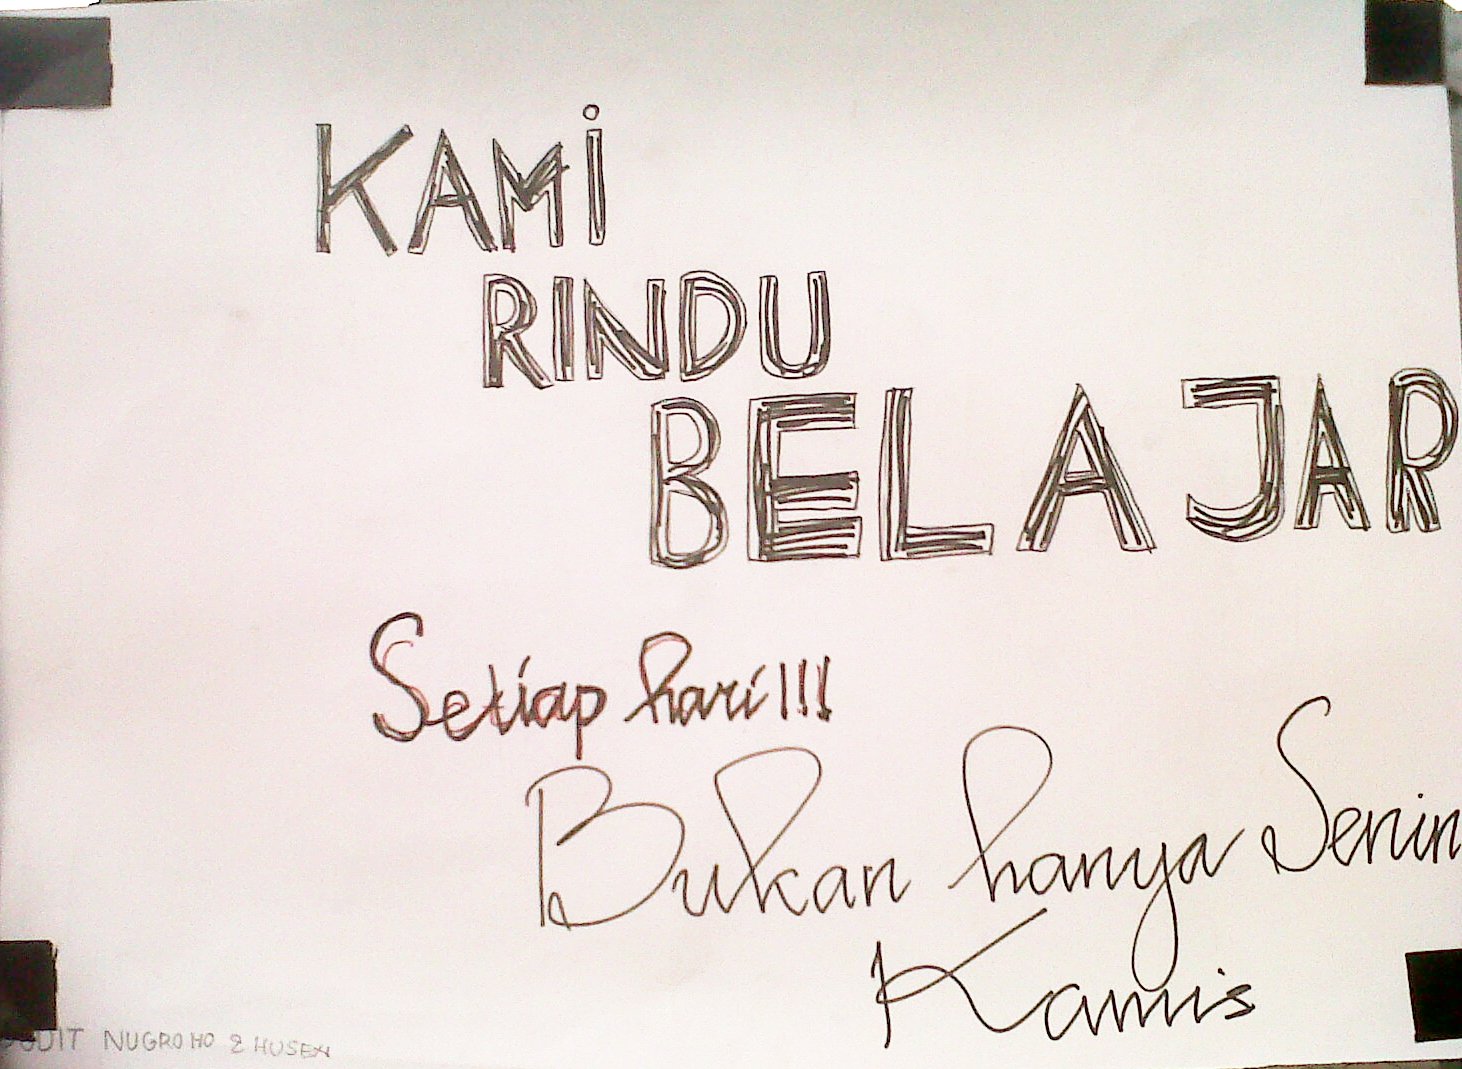 KAMi
RINDU
BELAJAR
Setiap hari!!!
Bukan hanya Senin
Kamis
NUGROHO & HUSEN